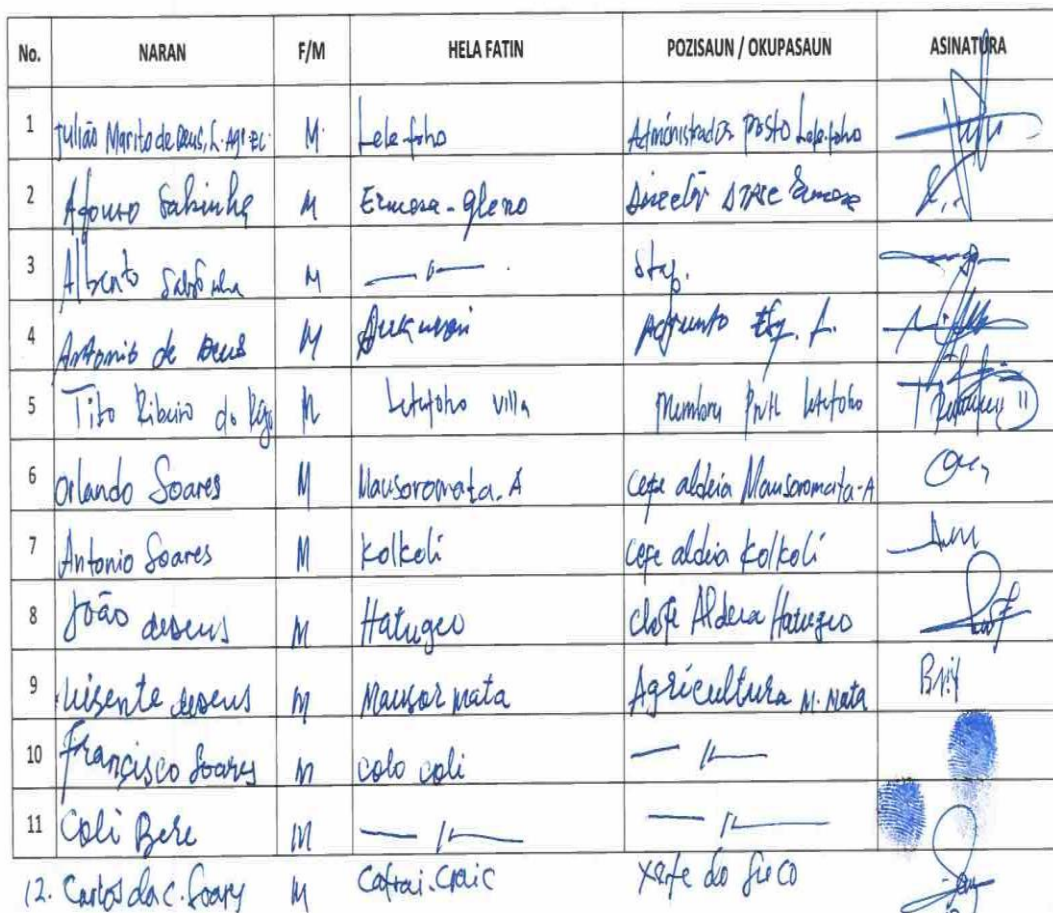 No. NARAN F/M HELA FATIN POZISAUN / OKUPASAUN ASINATURA
1 Julião Marito de Deus, L. M Lete-foho Administrador Posto Lete-foho
2 Afonso Salsinha M Ermera-Gleno Director STAE Ermera
3 Alberto Salsinha M — 〃 — .
4 Antonio de Deus M
5 Tito Ribeiro do Rego M Letefoho villa Membru PNTL letefoho
6 Orlando Soares M Mausoromata.A Cefe aldeia Mausoromata-A
7 Antonio Soares M Kolkoli Cefe aldeia Kolkoli
8 João de deus M Hatugeo Chefe Aldeia Hatugeo
9 Visente de deus M Mausormata Agricultura M. Mata
10 Francisco Soares M Colo coli — 〃 —
11 Coli Bere M — 〃 — — 〃 —
12. Carlos da C. Soares M Catrai-Craic Xefe do Suco